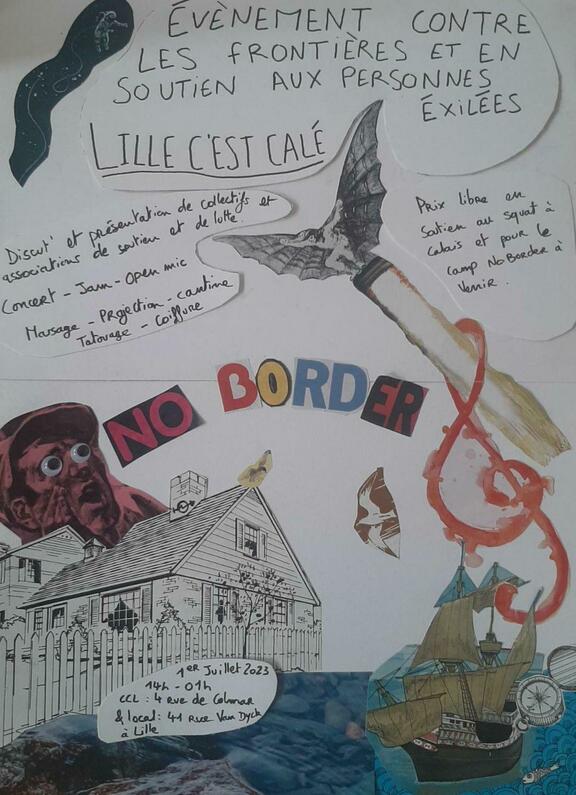 ÉVÈNEMENT CONTRE
LES FRONTIÈRES ET EN
SOUTIEN AUX PERSONNES
ÉXILÉES
LILLE C'EST CALÉ
Discut' et présentation de collectifs et
associations de soutien et de lutte.
Concert - Jam - Open mic
Massage - Projection - cantine
Tatouage - Coiffure
Prix libre en
soutien au squat à
Calais et pour le
camp No Border à
Venir.
NO BORDER
1er Juillet 2023
14h - 01h
CCL : 4 rue de Colmar
& local : 41 Rue Van Dyck
à Lille